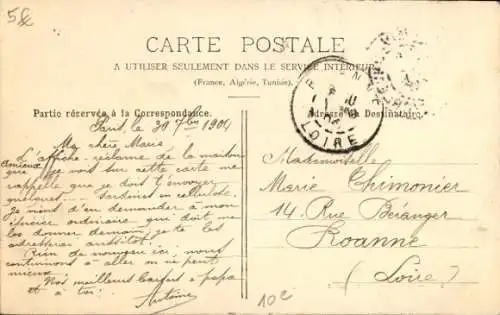 5f
CARTE POSTALE
A UTILISER SEULEMENT DANS LE SERVICE INTÉRIEUR
(France, Algérie, Tunisie).
Partie réservée à la Correspondance.
Adresse du Destinataire.
LOIRE
30 7bre 1904
Ma chère Marie
L'affiche-réclame de la maison
Amieux
que je vois sur cette carte me
rappelle que je dois t'envoyer
quelques sardines
Je viens d'en demander à mon
épicier ordinaire, qui doit me
les donner demain; je te les
adresserai aussitôt.
Rien de nouveau ici; nous
continuons à aller on ne peut
mieux.
Nos meilleurs baisers à papa
et à toi.
Antoine
Mademoiselle
Marie Thimonier
14 Rue Béranger
Roanne
(Loire)
10e